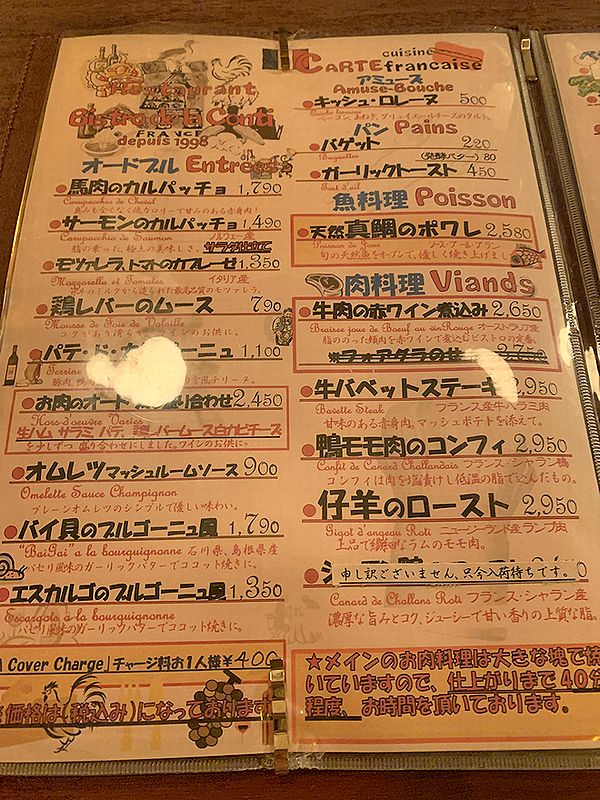 Restaurant
Bistro de la Conti
FRANCE
depuis 1998
オードブル Entrée
●馬肉のカルパッチョ 1,790
Carupacchio de Cheval
●サーモンのカルパッチョ 1,490
Carupacchio de Saumon ノルウェー産
脂の乗った、極上の美味しさ。サラダ仕立て
●モツァレラ、トマトのカプレーゼ 1,350
Mozzarella et Tomates イタリア産
水牛のミルクから造られた最高品質のモツァレラ。
●鶏レバーのムース 790
Mousse de Foie de Volaille
コクがあり滑らか。ワインのお供に。
●パテ・ド・カンパーニュ 1,100
Terrine
豚肉、鴨
●お肉のオードブル盛り合わせ 2,450
Hors-d'oeuvre Varies
生ハム サラミ パテ、鶏レバームース白カビチーズ
を少しずつ盛り合わせにしました。ワインのお供に。
●オムレツマッシュルームソース 900
Omelette Sauce Champignon
プレーンオムレツのシンプルで優しい味わい。
●バイ貝のブルゴーニュ風 1,790
"BaiGai" a la bourguignonne 石川県、島根県産
パセリ風味のガーリックバターでココット焼きに。
●エスカルゴのブルゴーニュ風 1,350
Escargots a la bourguignonne
パセリ風味のガーリックバターでココット焼きに。
Cover Charge」チャージ料お1人様¥400
価格は(税込み)になっております
cuisine
CARTE francaise
アミューズ
Amuse-Bouche
●キッシュ・ロレーヌ 500
ベーコン、玉ねぎ、グリュイエールチーズのタルト。
パン Pains
●バゲット 220
Baguettes (発酵バター) 80
●ガーリックトースト 450
魚料理 Poisson
●天然真鯛のポワレ 2,580
Poisson de Jour
旬の天然魚をオーブンで、優しく焼き上げまし
肉料理 Viands
●牛肉の赤ワイン煮込み 2,650
Braisee joue de Boeuf au vin Rouge オーストラリア産
脂ののった頬肉を赤ワインで煮込むビストロの定番。
●牛バベットステーキ 2,950
Bavette Steak フランス産牛ハラミ肉
甘味のある赤身肉。マッシュポテトを添えて。
●鴨モモ肉のコンフィ 2,950
Confit de Canard Challandais フランス・シャラン鴨
コンフィは肉を塩漬けし低温の脂で込んだもの。
●仔羊のロースト 2,950
Gigot d'angeau Roti ニュージーランド産ランプ肉
上品で繊細なラムのモモ肉。
申し訳ございません、只今入荷待ちです。
Canard de Challans Roti フランス・シャラン産
濃厚な旨みとコク、ジューシーで甘い香りの上質な脂。
★メインのお肉料理は大きな塊で焼
いていますので、仕上がりまで40分
程度、お時間を頂いております。